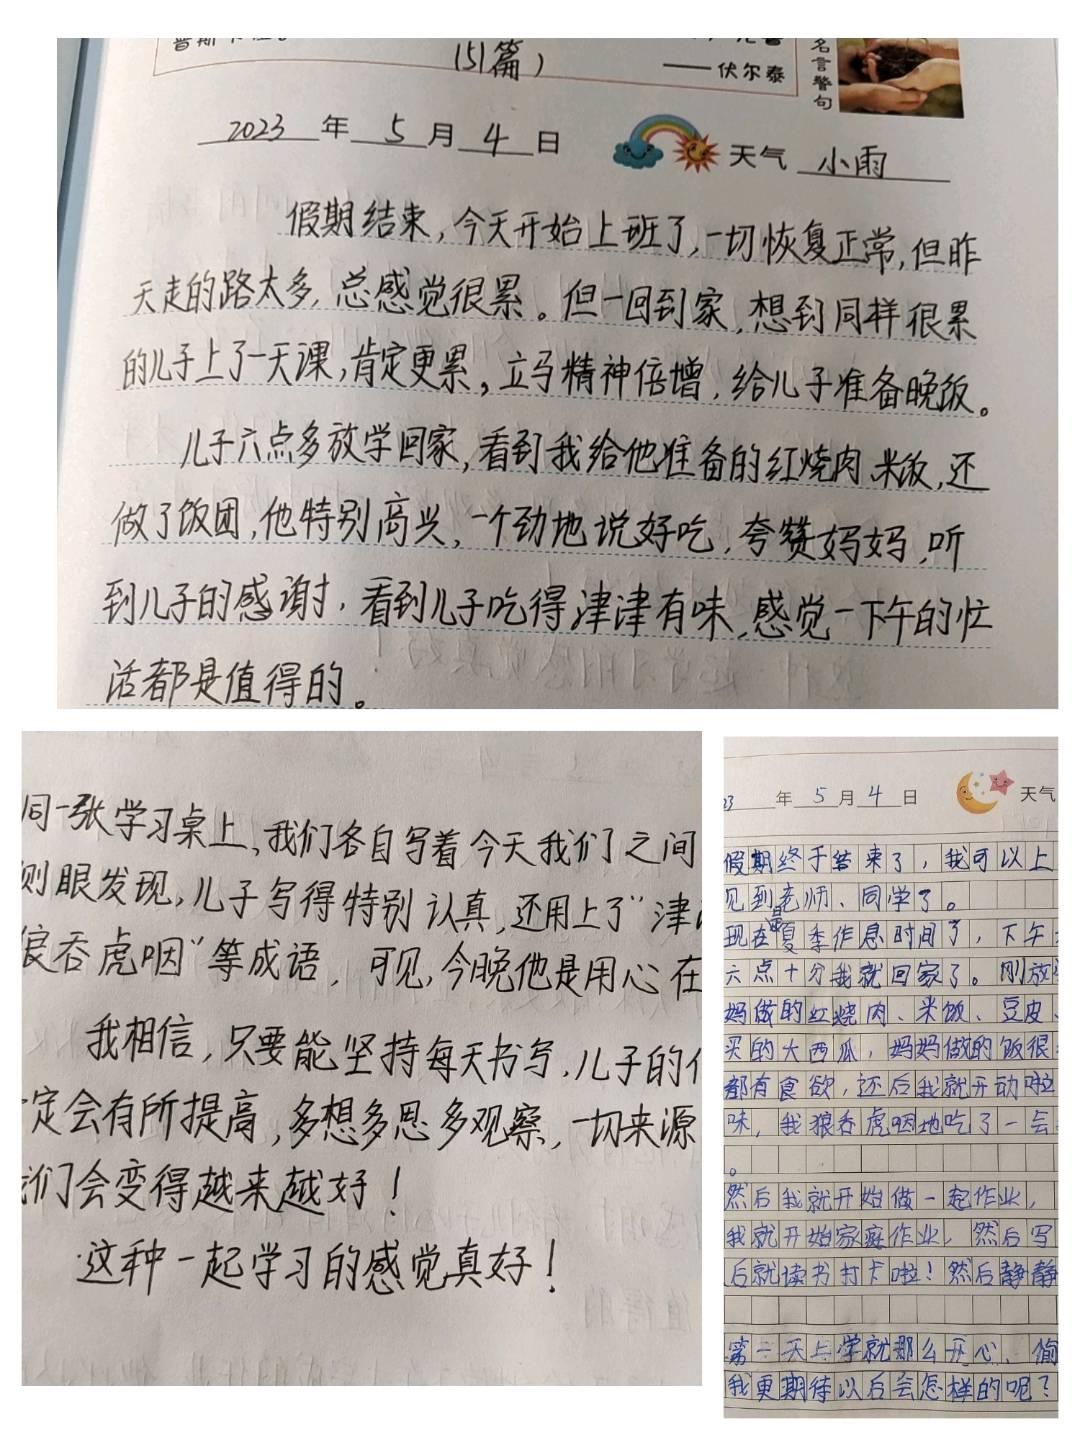 (51篇)
—— 伏尔泰
名言警句
2023 年 5 月 4 日
天气 小雨
假期结束,今天开始上班了,一切恢复正常,但昨
天走的路太多,总感觉很累。但一回到家,想到同样很累
的儿子上了一天课,肯定更累,立马精神倍增,给儿子准备晚饭。
儿子六点多放学回家,看到我给他准备的红烧肉、米饭,还
做了饭团,他特别高兴,一个劲地说好吃,夸赞妈妈,听
到儿子的感谢,看到儿子吃得津津有味,感觉一下午的忙
活都是值得的。
同一张学习桌上,我们各自写着今天我们之间
侧眼发现,儿子写得特别认真,还用上了"津
狼吞虎咽"等成语,可见,今晚他是用心在
我相信,只要能坚持每天书写,儿子的
一定会有所提高,多想多思多观察,一切来源
我们会变得越来越好!
这种一起学习的感觉真好!
23 年 5 月 4 日
天气
假期终于结束了,我可以上
见到老师、同学了。
现在是夏季作息时间了,下午
六点十分我就回家了。刚放
妈做的红烧肉、米饭、豆皮、
买的大西瓜,妈妈做的饭很
都有食欲,还后我就开动啦
味,我狼吞虎咽地吃了一会
。
然后我就开始做一起作业,
我就开始家庭作业,然后写
后就读书打卡啦!然后静静
第一天上学就那么开心、偷
我更期待以后会怎样的呢?